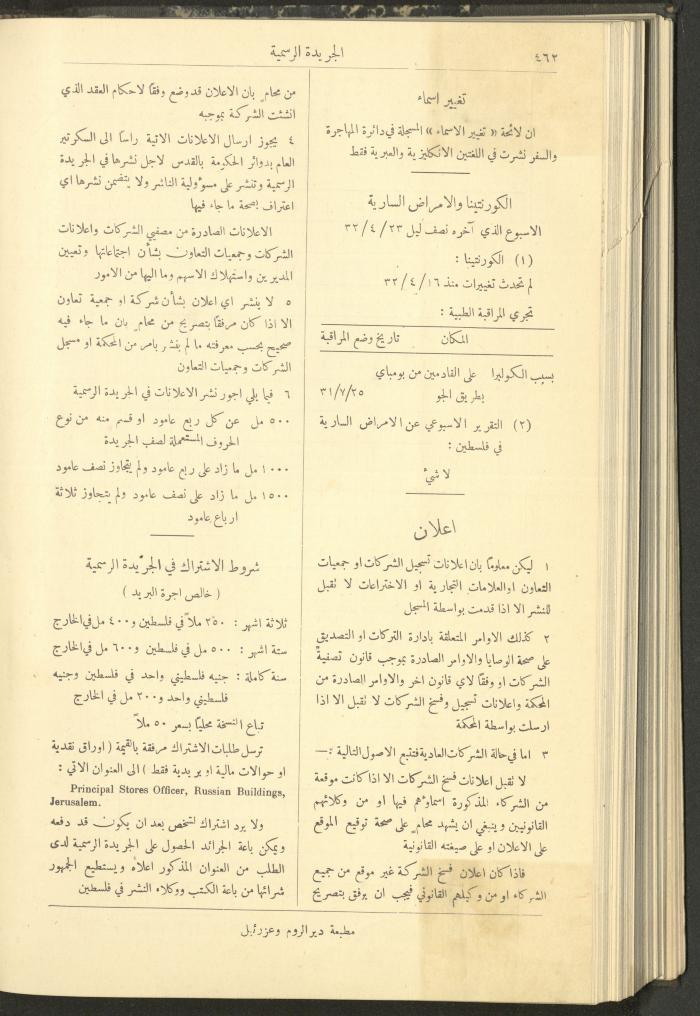 ٤٦٢
الجريدة الرسمية
تغيير اسماء
ان لائحة « تغيير الاسماء » المسجلة في دائرة المهاجرة
والسفر نشرت في اللغتين الانكليزية والعبرية فقط
الكورنتينا والامراض السارية
الاسبوع الذي آخره نصف ليل ٢٣/٤/٣٢
(١) الكورنتينا :
لم تحدث تغييرات منذ ١٦/٤/٣٢
تجري المراقبة الطبية :
المكان تاريخ وضع المراقبة
بسبب الكوليرا على القادمين من بومباي
بطريق الجو ٢٥/٧/٣١
(٢) التقرير الاسبوعي عن الامراض السارية
في فلسطين :
لا شيء
اعلان
١ ليكن معلوما بان اعلانات تسجيل الشركات او جمعيات
التعاون او العلامات التجارية او الاختراعات لا تقبل
للنشر الا اذا قدمت بواسطة المسجل
٢ كذلك الاوامر المتعلقة بادارة التركات او التصديق
على صحة الوصايا والاوامر الصادرة بموجب قانون تصفية
الشركات او وفقا لاي قانون اخر والاوامر الصادرة من
المحكمة واعلانات تسجيل وفسخ الشركات لا تقبل الا اذا
ارسلت بواسطة المحكمة
٣ اما في حالة الشركات العادية فتتبع الاصول التالية :—
لا تقبل اعلانات فسخ الشركات الا اذا كانت موقعة
من الشركاء المذكورة اسماؤهم فيها او من وكلائهم
القانونيين وينبغي ان يشهد محام على صحة توقيع الموقع
على الاعلان او على صيغته القانونية
فاذا كان اعلان فسخ الشركة غير موقع من جميع
الشركاء او من وكيلهم القانوني فيجب ان يرفق بتصريح
من محام بان الاعلان قد وضع وفقا لاحكام العقد الذي
انشئت الشركة بموجبه
٤ يجوز ارسال الاعلانات الاتية راسا الى السكرتير
العام بدوائر الحكومة بالقدس لاجل نشرها في الجريدة
الرسمية وتنشر على مسؤولية الناشر ولا يتضمن نشرها اي
اعتراف بصحة ما جاء فيها
الاعلانات الصادرة من مصفيي الشركات واعلانات
الشركات وجمعيات التعاون بشأن اجتماعاتها وتعيين
المديرين واستهلاك الاسهم وما اليها من الامور
٥ لا ينشر اي اعلان بشأن شركة او جمعية تعاون
الا اذا كان مرفقا بتصريح من محام بان ما جاء فيه
صحيح بحسب معرفته ما لم ينشر بامر من المحكمة او مسجل
الشركات وجمعيات التعاون
٦ فيما يلي اجور نشر الاعلانات في الجريدة الرسمية
٥٠٠ مل عن كل ربع عامود او قسم منه من نوع
الحروف المستعملة لصف الجريدة
١٠٠٠ مل ما زاد على ربع عامود ولم يتجاوز نصف عامود
١٥٠٠ مل ما زاد على نصف عامود ولم يتجاوز ثلاثة
ارباع عامود
شروط الاشتراك في الجريدة الرسمية
( خالص اجرة البريد )
ثلاثة اشهر : ٢٥٠ ملاً في فلسطين و٤٠٠ مل في الخارج
ستة اشهر : ٥٠٠ مل في فلسطين و٦٠٠ مل في الخارج
سنة كاملة : جنيه فلسطيني واحد في فلسطين وجنيه
فلسطيني واحد و٢٠٠ مل في الخارج
تباع النسخة محليًا بسعر ٥٠ ملاً
ترسل طلبات الاشتراك مرفقة بالقيمة ( اوراق نقدية
او حوالات مالية او بريدية فقط ) الى العنوان الاتي :
Principal Stores Officer, Russian Buildings,
Jerusalem.
ولا يرد اشتراك لشخص بعد ان يكون قد دفعه
ويمكن باعة الجرائد الحصول على الجريدة الرسمية لدى
الطلب من العنوان المذكور اعلاه ويستطيع الجمهور
شرائها من باعة الكتب ووكلاء النشر في فلسطين
مطبعة دير الروم وعزرئيل